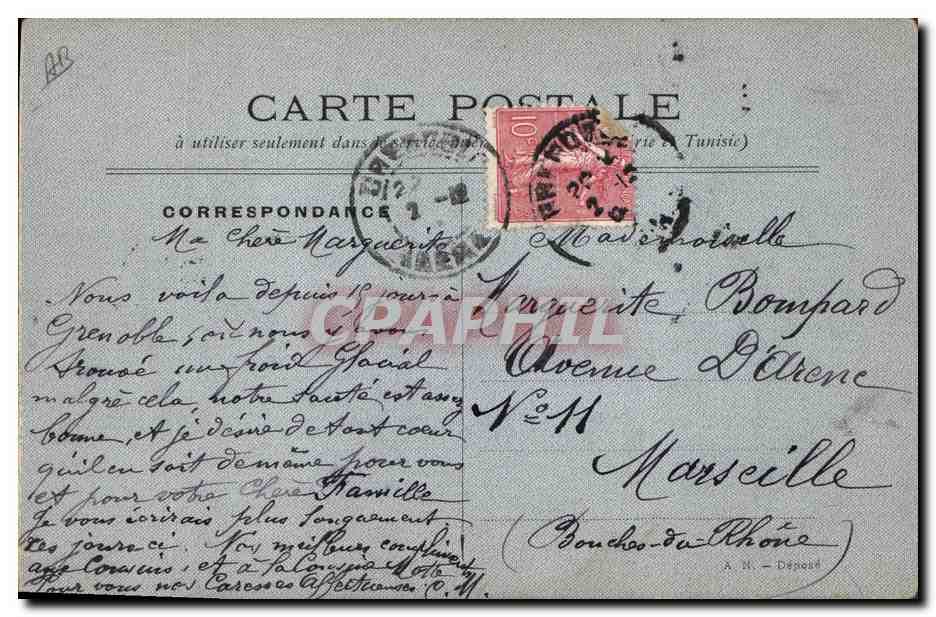 AB
CARTE POSTALE
à utiliser seulement dans le service rie et Tunisie)
CORRESPONDANCE
Ma Chère Marguerite
Nous voila depuis 15 jours à
Grenoble, où nous y avons
trouvé un froid Glacial
malgré cela, notre santé est assez
bonne, et je désire de tout cœur
qu'il en soit de même pour vous
et pour votre Chère Famille
Je vous écrirais plus longuement
ces jours ci. Nos meilleurs compliments
aux Cousins, et à la Cousine
Pour vous nos Caresses Affectueuses. M
Mademoiselle
Marguerite Bompard
Avenue D'Arenc
No 11
Marseille
(Bouches-du-Rhône)
A. N. — Déposé
10
CPAPHIL